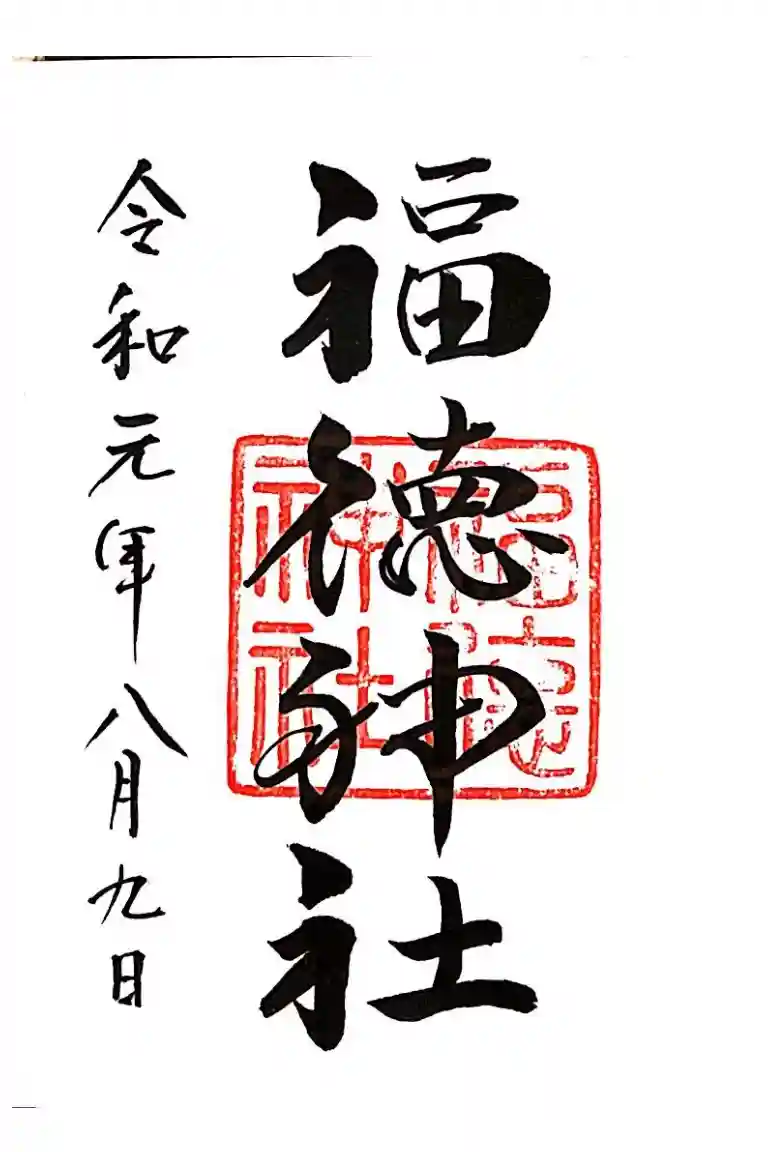 福徳神社
福徳
神社
令和元年八月九日